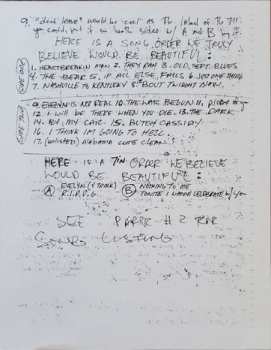 9. "dead lease" would be cool as the label of the 7".
you could put it on both sides w/ A and B
HERE IS A SONG ORDER WE TRULY
BELIEVE WOULD BE BEAUTIFUL:
SIDE ONE
1. HEARTBREAKIN MAN 2. THEY RAN 3. OLD SEPT. BLUES
4. THE BEAR 5. IF ALL ELSE FAILS 6.
7. NASHVILLE TO KENTUCKY 8. 'BOUT TWILIGHT NOW.
SIDE TWO
9. EVELYN IS NOT REAL 10. THE WAR BEGUN 11. PICTURE OF YOU
12. I WILL BE THERE WHEN YOU DIE. 13. THE DARK.
14. BY MY CAR. 15. BUTCH CASSIDY
16. I THINK I'M GOING TO HELL.
17. (UNLISTED) CODE CLEAN.
HERE IS A 7IN ORDER WE BELIEVE
WOULD BE BEAUTIFUL:
A EVELYN
R.I.P.
B NOTHING TO ME
TONITE I WANNA CELEBRATE W/ YOU
SEE PAPER #2 FOR
SONGS LISTING